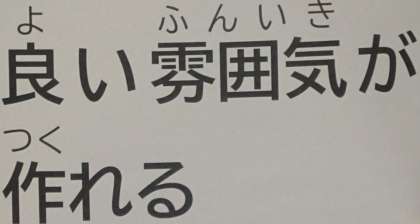 よ ふんいき
良い雰囲気が
つく
作れる